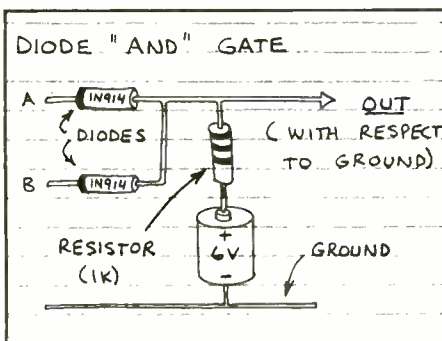 DIODE "AND" GATE
A
1N914
OUT
DIODES
(WITH RESPECT
TO GROUND)
B
1N914
RESISTOR
(1K)
+
6V
-
GROUND